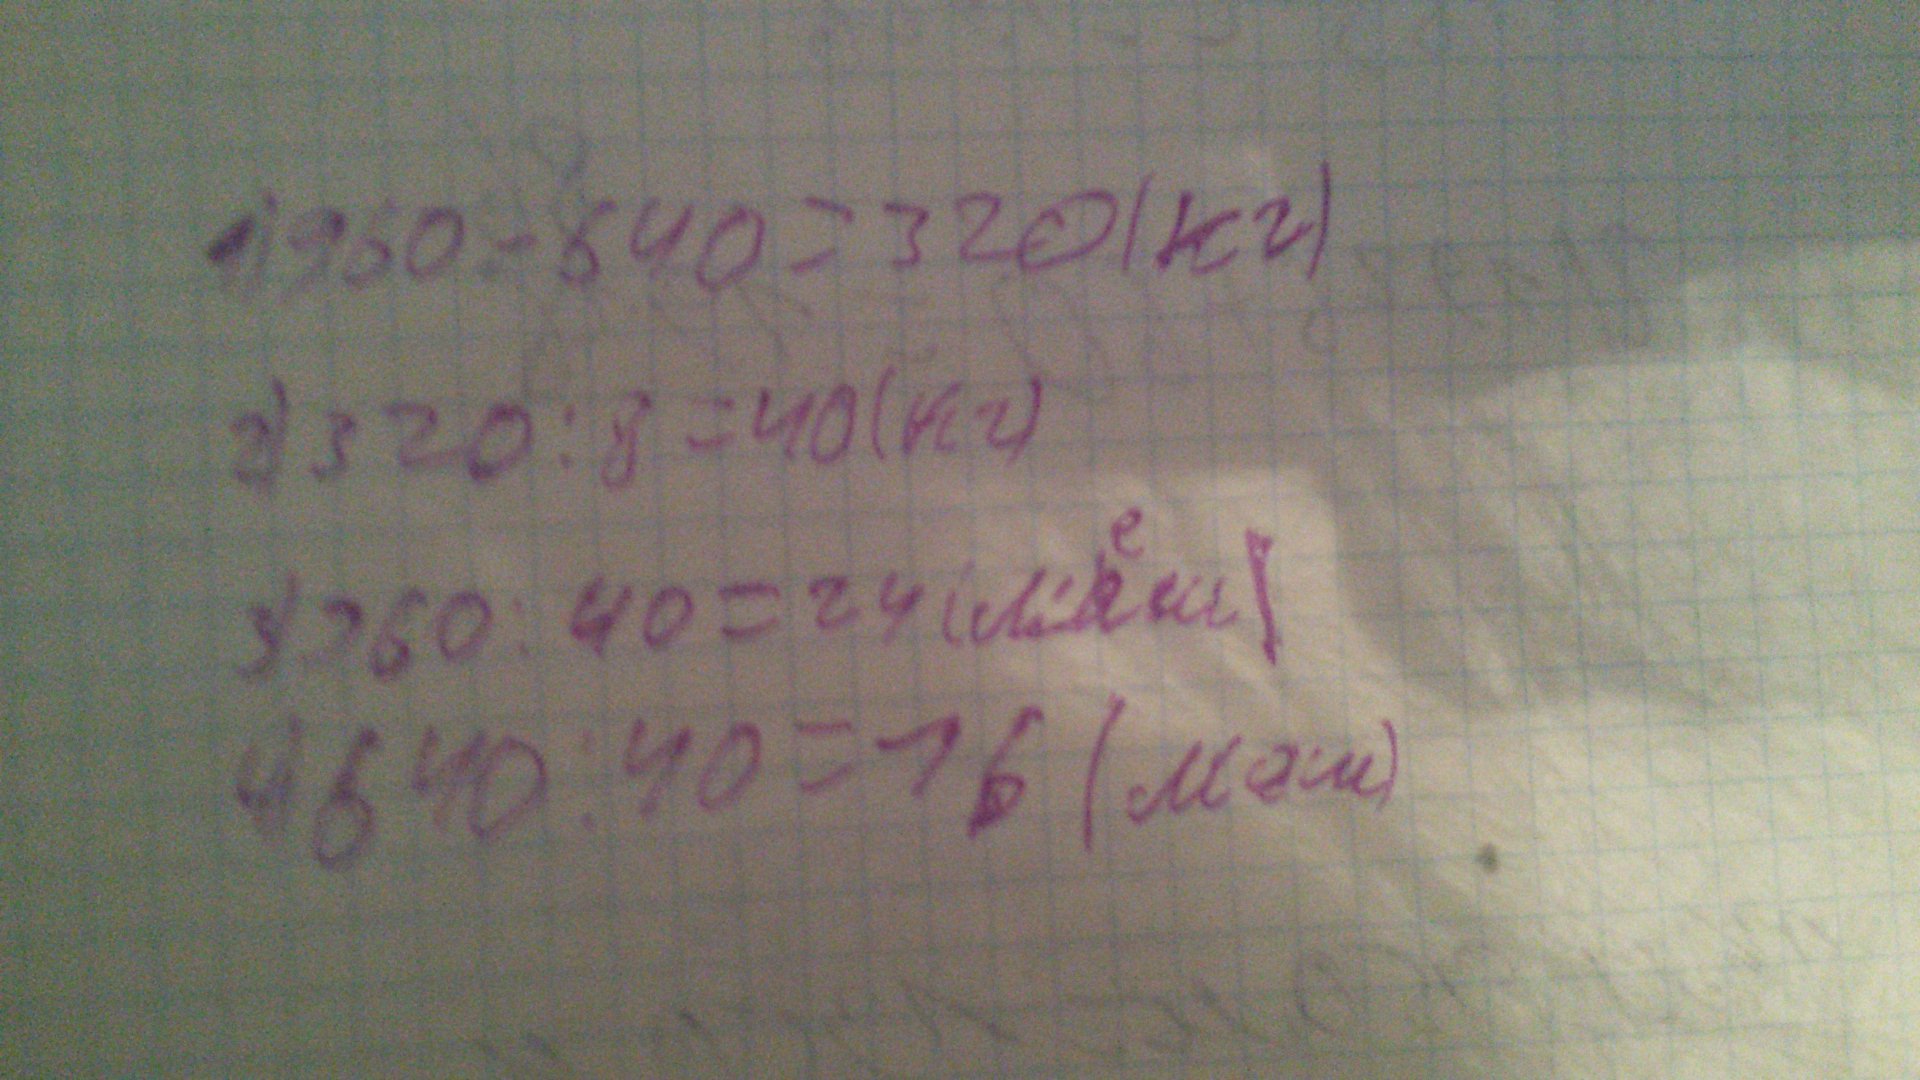 1) 960-640=320(кг)
2) 320:8=40(кг)
3) 960:40=24(меш)
4) 640:40=16(меш)